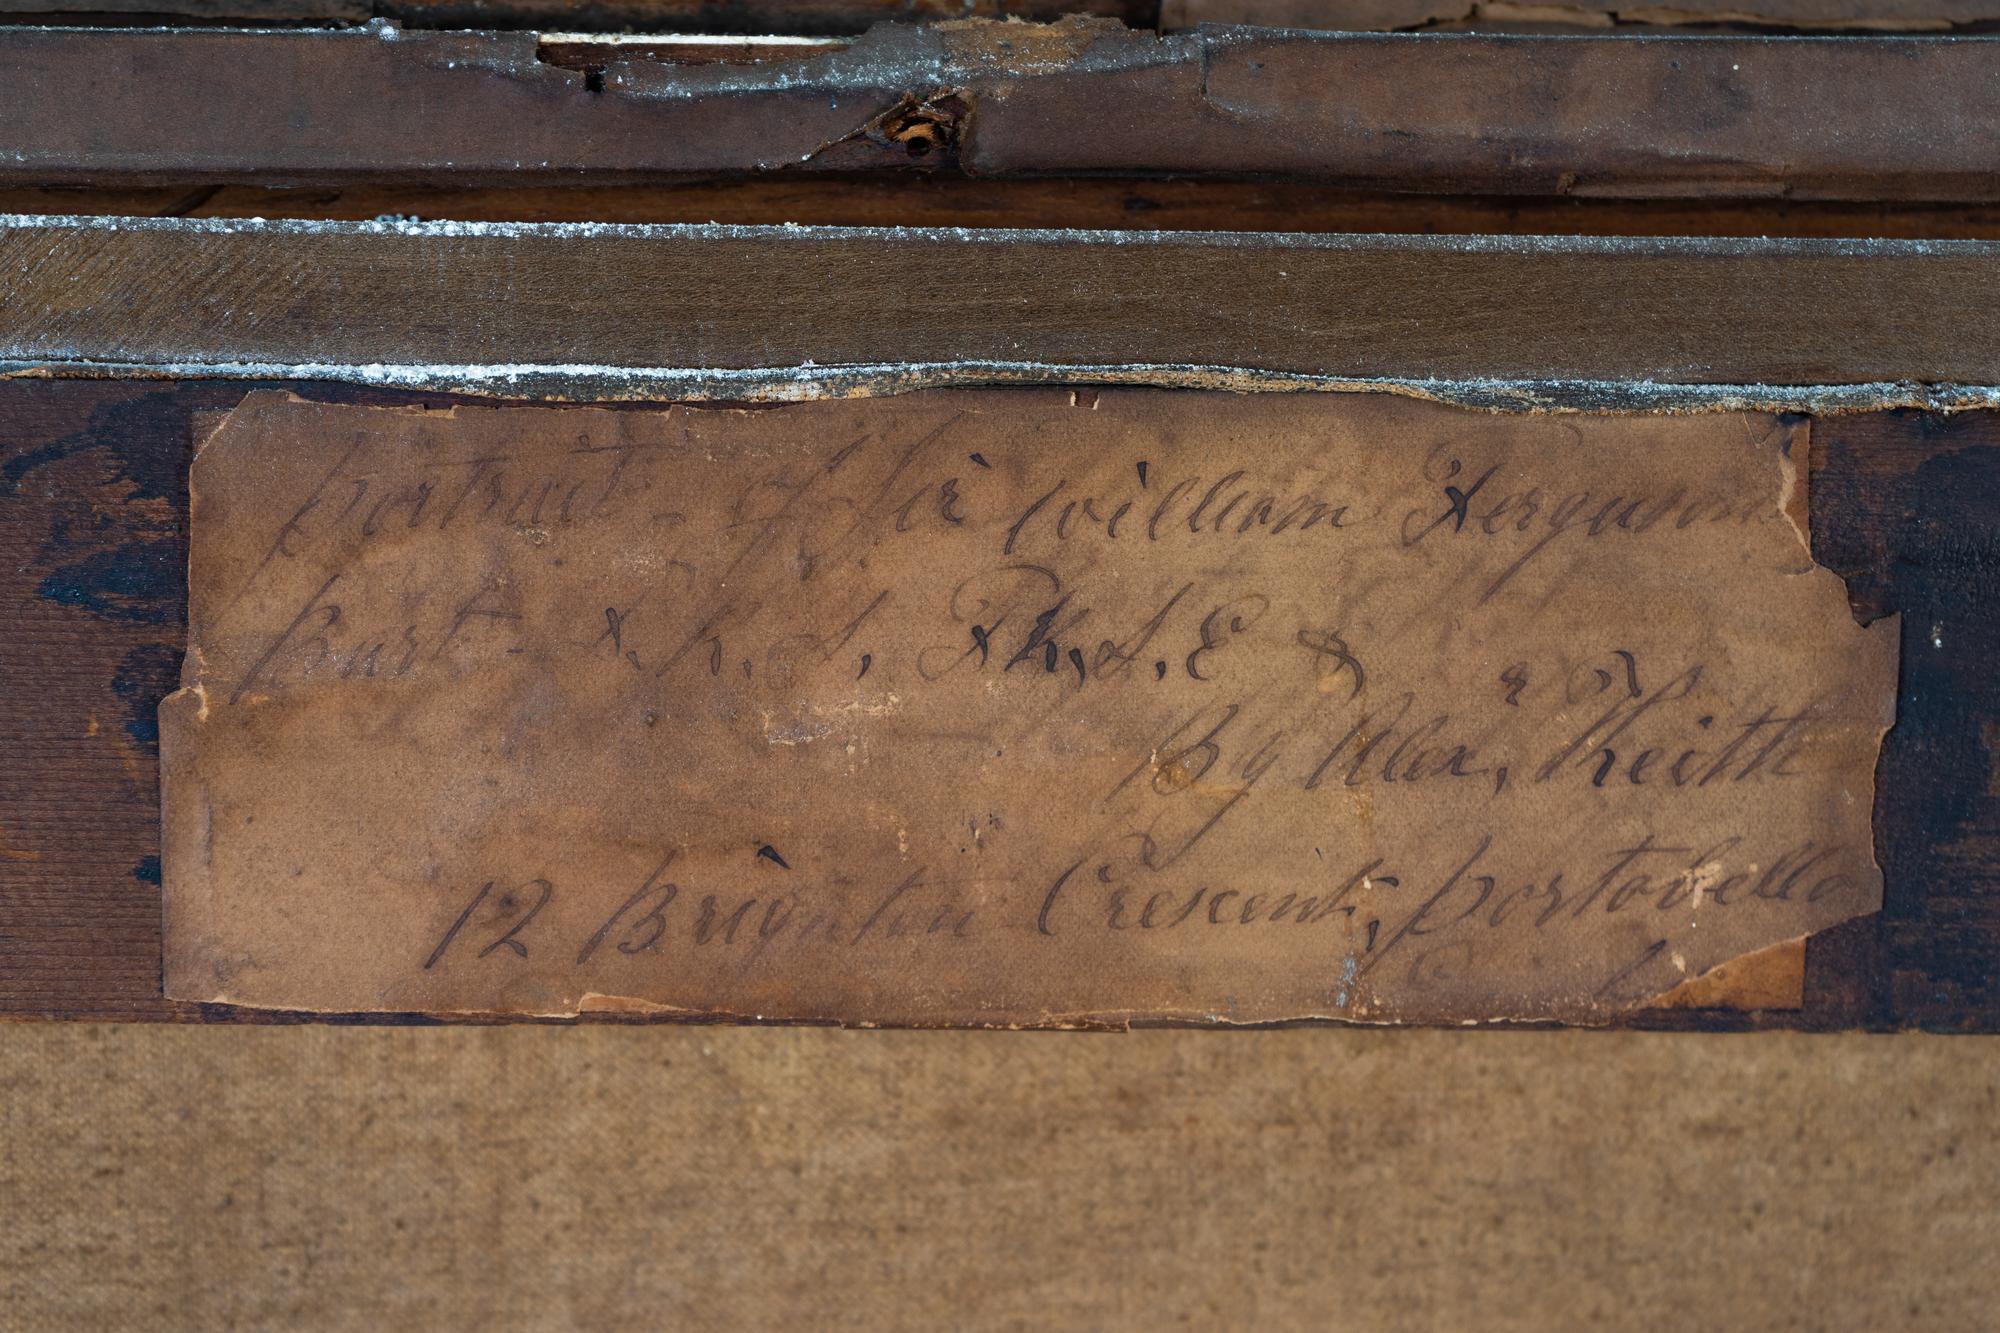 Portrait - of Sir William Ferguson
Bart - F. R. S, F.R,S.E &
By Alex, Keith
12 Brighton Crescent, Portobello